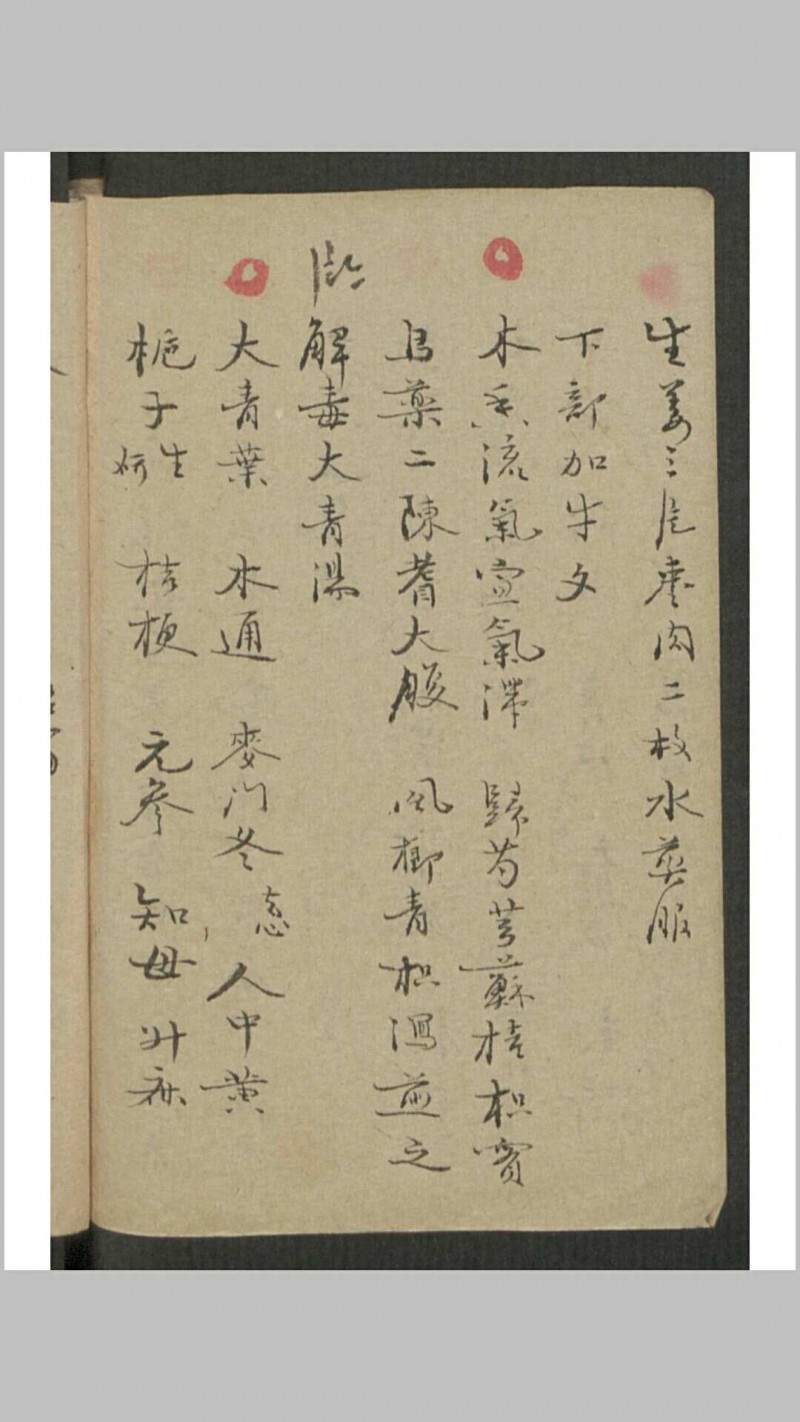 生姜三片棗肉二枚水煎服
下部加牛夕
木香流氣宣氣滞 歸芍芎蘇桔枳實
乌藥二陳耆大腹 風榔青枳瀉煎之
解毒大青湯
大青葉 木通 麥門冬 去心 人中黄
梔子 生研 桔梗 元參 知母 升麻